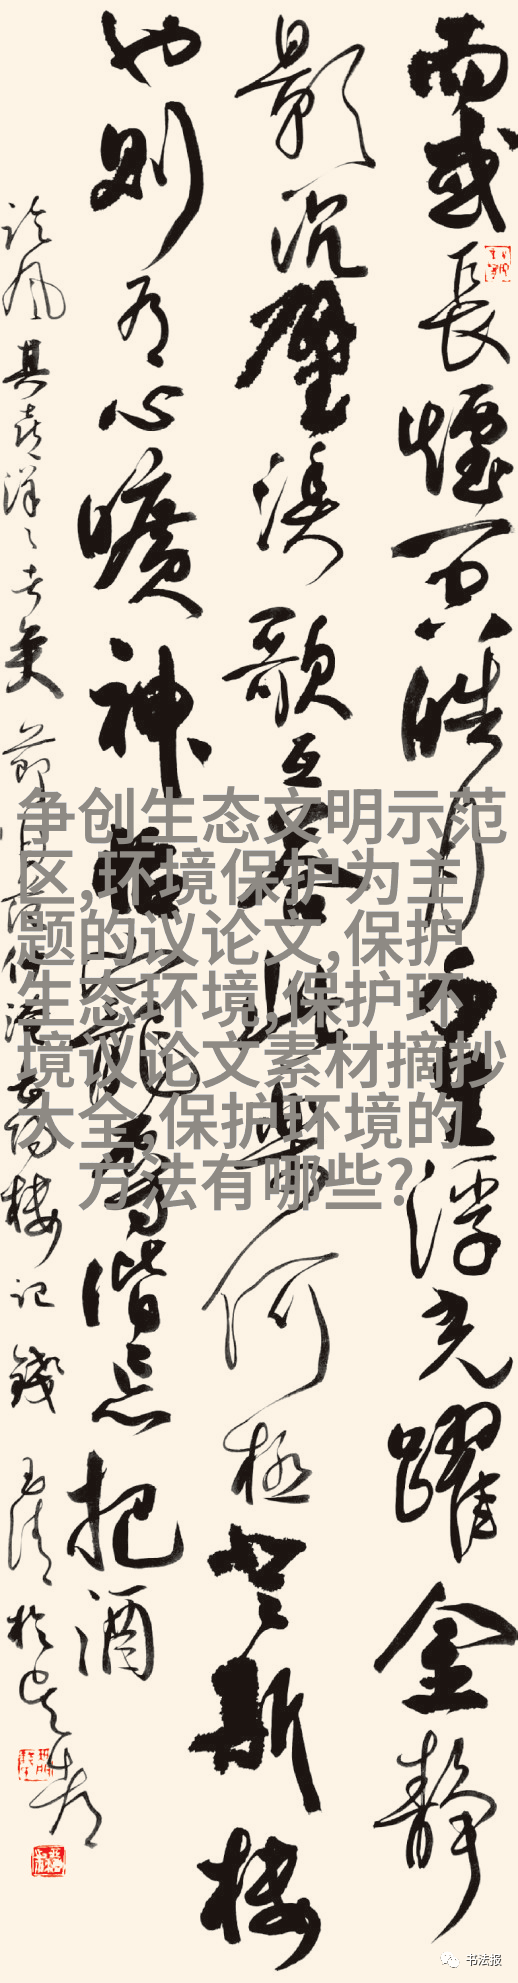 而或長煙一空皓月千里浮光躍金静
影沉璧漁歌互答此樂何極登斯樓
也則有心曠神怡寵辱偕忘把酒
臨風其喜洋洋者矣 節自范仲淹岳陽樓記 錢玉清於
争创生态文明示范
区,环境保护为主
题的议论文,保护
生态环境,保护环
境议论文素材摘抄
大全,保护环境的
方法有哪些?
书法报